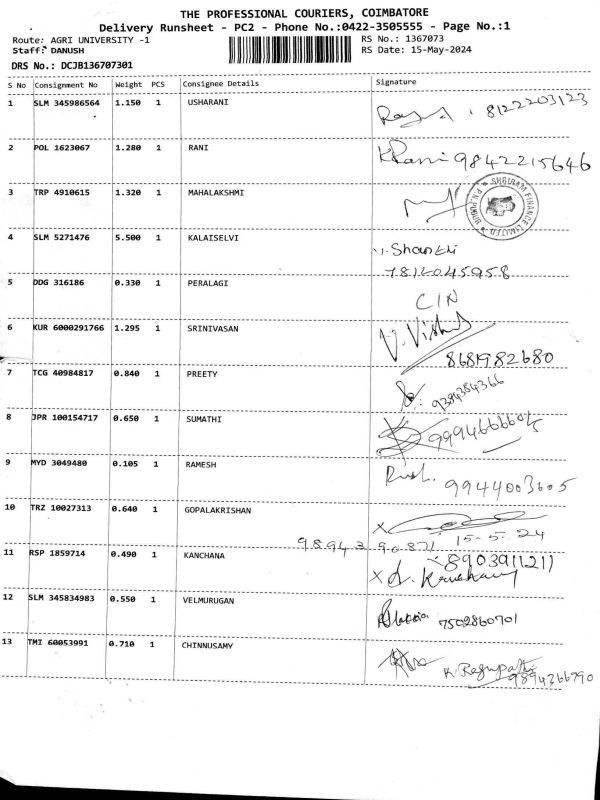 THE PROFESSIONAL COURIERS, COIMBATORE
Delivery Runsheet - PC2 - Phone No.:0422-3505555 - Page No.:1
Route: AGRI UNIVERSITY -1 RS No.: 1367073
Staff: DANUSH RS Date: 15-May-2024
DRS No.: DCJB136707301
S No Consignment No Weight PCS Consignee Details Signature
1 SLM 345986564 1.150 1 USHARANI 8122203123
2 POL 1623067 1.280 1 RANI K Rani 9842215646
3 TRP 4910615 1.320 1 MAHALAKSHMI SHRIRAM FINANCE LIMITED
4 SLM 5271476 5.500 1 KALAISELVI
7812045958
5 DDG 316186 0.330 1 PERALAGI C/N
6 KUR 6000291766 1.295 1 SRINIVASAN
8681982680
7 TCG 40984817 0.840 1 PREETY 9384384366
8 JPR 100154717 0.650 1 SUMATHI
9 MYD 3049480 0.105 1 RAMESH 9944003605
10 TRZ 10027313 0.640 1 GOPALAKRISHAN X
15-5-24
11 RSP 1859714 0.490 1 KANCHANA 8903911211
X
12 SLM 345834983 0.550 1 VELMURUGAN 7502860701
13 TMI 60053991 0.710 1 CHINNUSAMY K. Ragupathi
9894366790